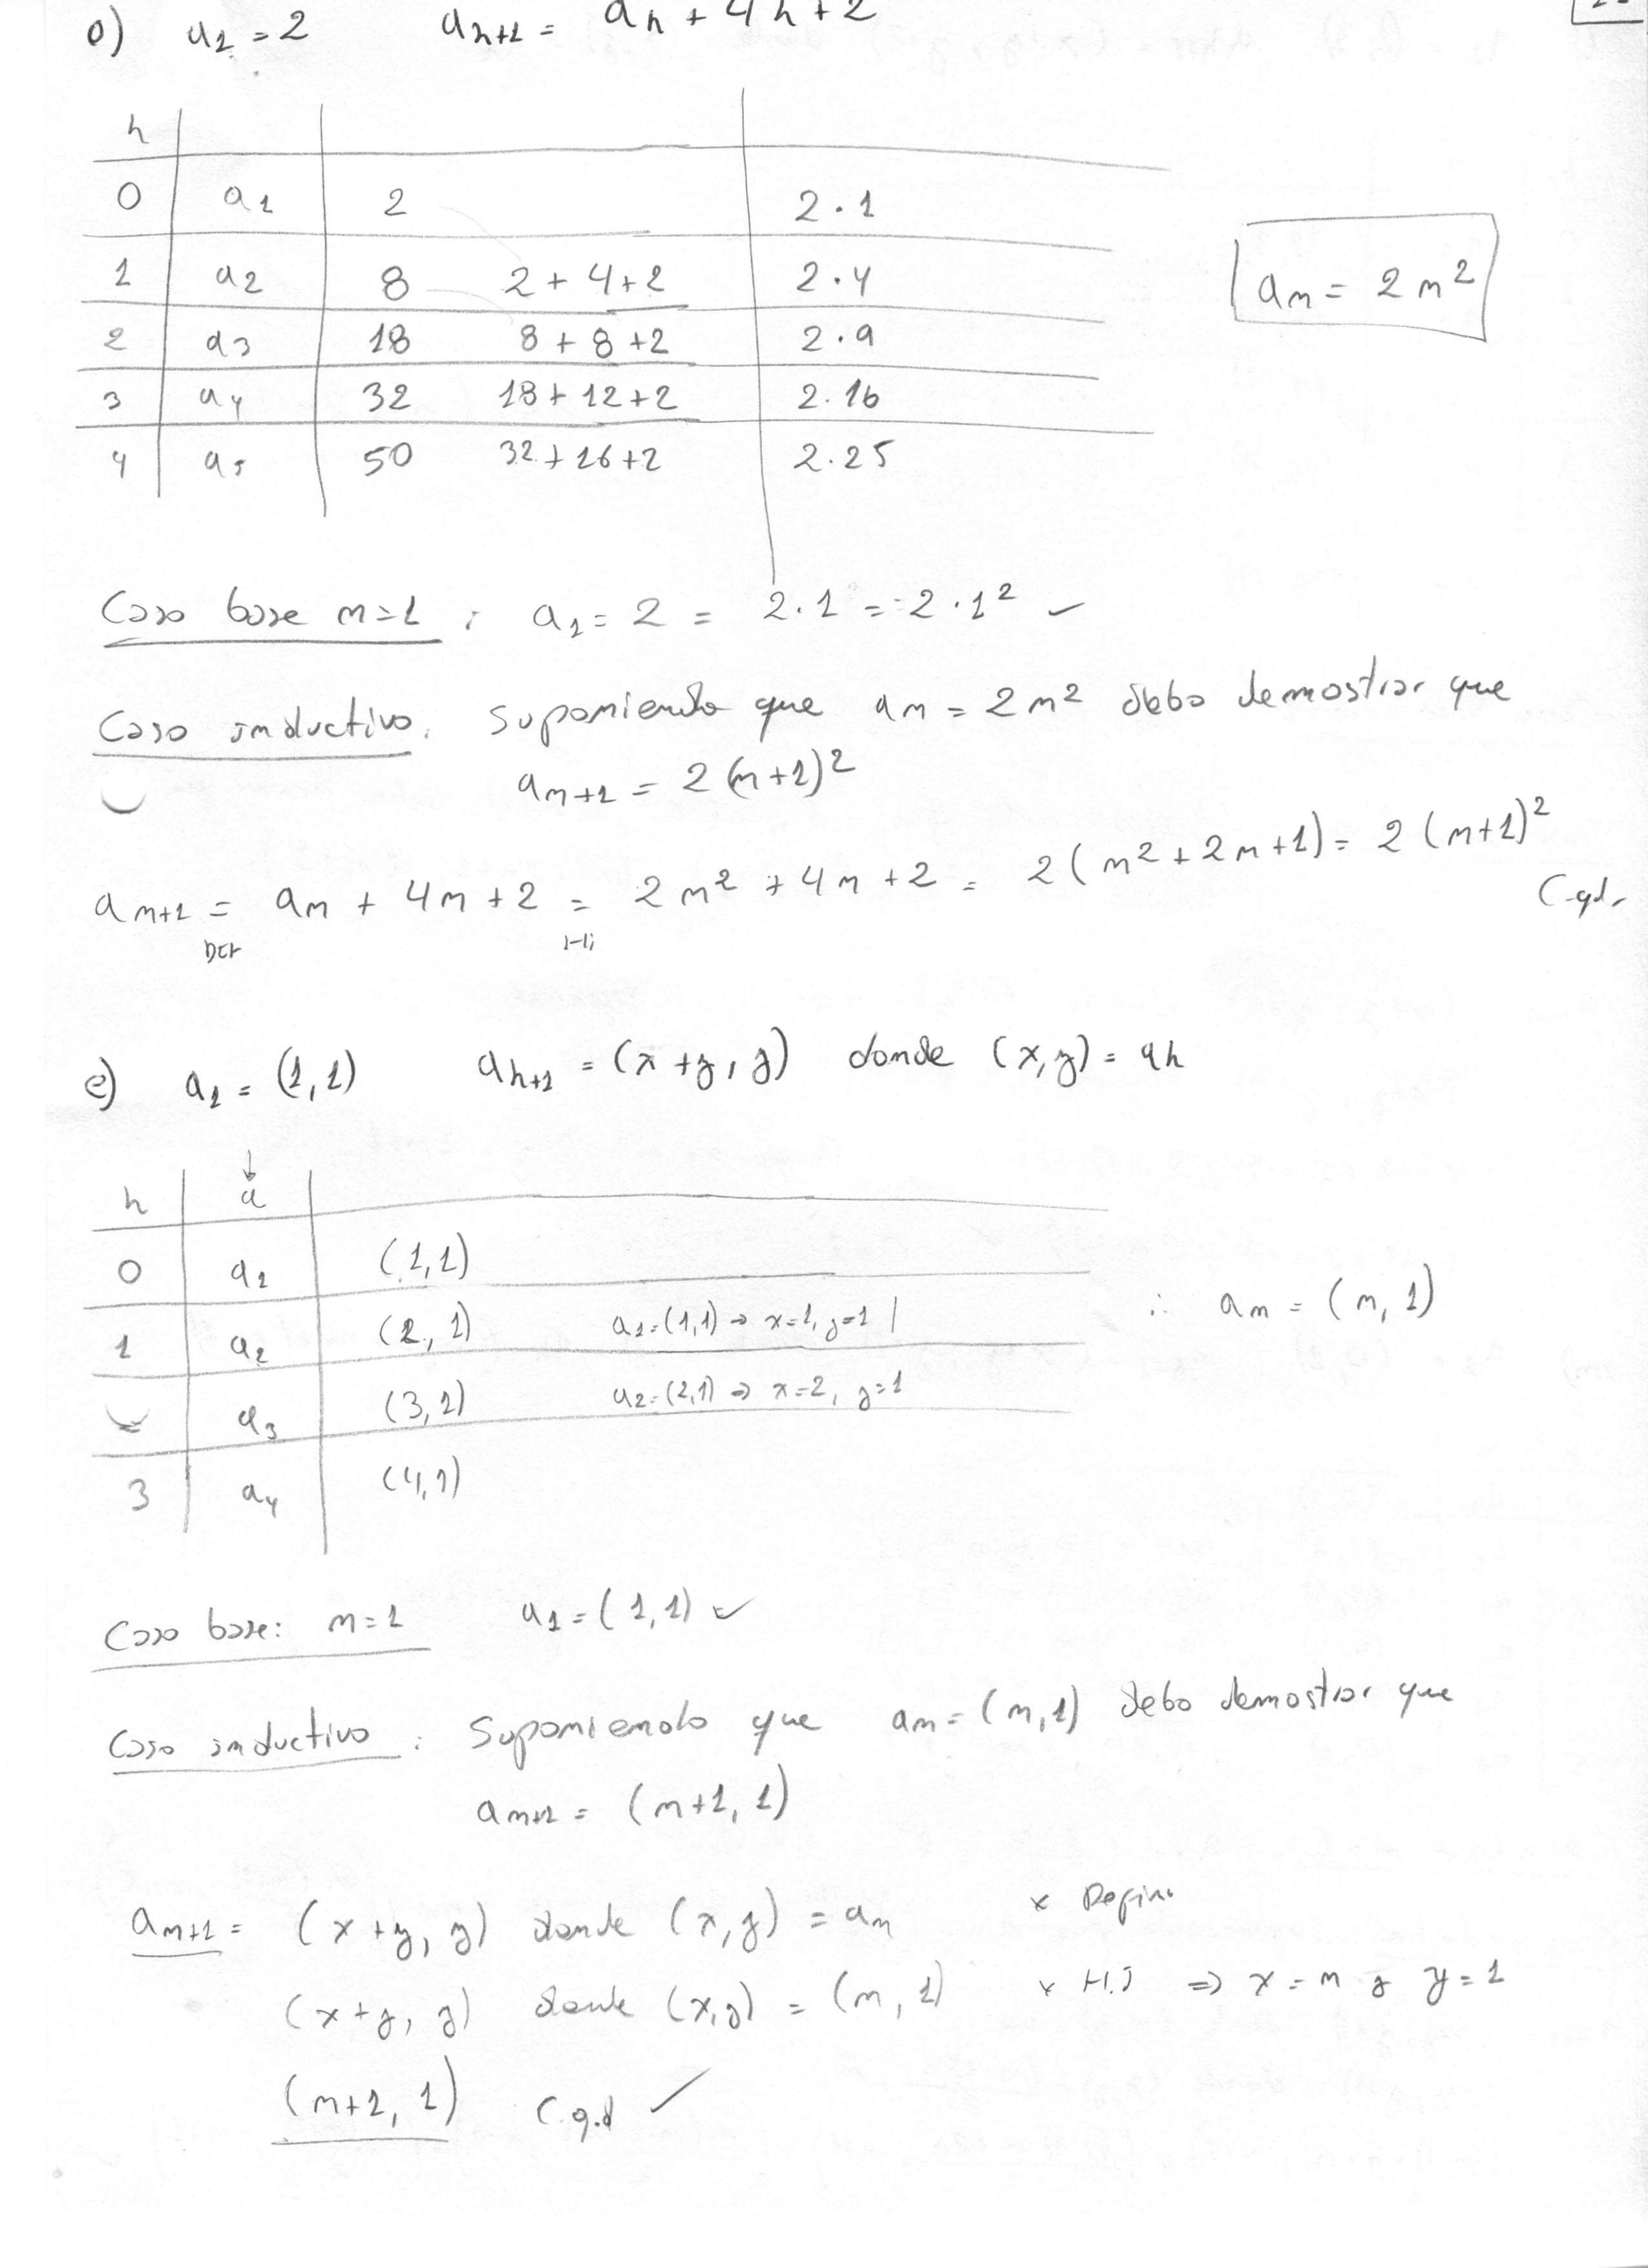 a) a₁ = 2 aₕ₊₁ = aₕ + 4h + 2
h
0 a₁ 2 2.1
1 a₂ 8 2+4+2 2.4
2 a₃ 18 8+8+2 2.9
3 a₄ 32 18+12+2 2.16
4 a₅ 50 32+16+2 2.25
aₙ = 2n²
Caso base n=1 : a₁ = 2 = 2.1 = 2.1² ✓
Caso inductivo. Suponiendo que aₙ = 2n² debo demostrar que
aₙ₊₁ = 2(n+1)²
aₙ₊₁ = aₙ + 4n + 2 = 2n² + 4n + 2 = 2(n² + 2n + 1) = 2(n+1)²
Def HI
C.qd.
e) a₁ = (1,1) aₕ₊₁ = (x+y, y) donde (x,y) = aₕ
↓
h a
0 a₁ (1,1)
1 a₂ (2,1) a₁=(1,1) ⇒ x=1, y=1 |
a₃ (3,1) a₂=(2,1) ⇒ x=2, y=1
3 a₄ (4,1)
∴ aₙ = (n,1)
Caso base: n=1 a₁ = (1,1) ✓
Caso inductivo : Suponiendo que aₙ = (n,1) debo demostrar que
aₙ₊₁ = (n+1, 1)
aₙ₊₁ = (x+y, y) donde (x,y) = aₙ x
(x+y, y) donde (x,y) = (n,1) x H.I ⇒ x=n y y=1
(n+1, 1) C.q.d ✓